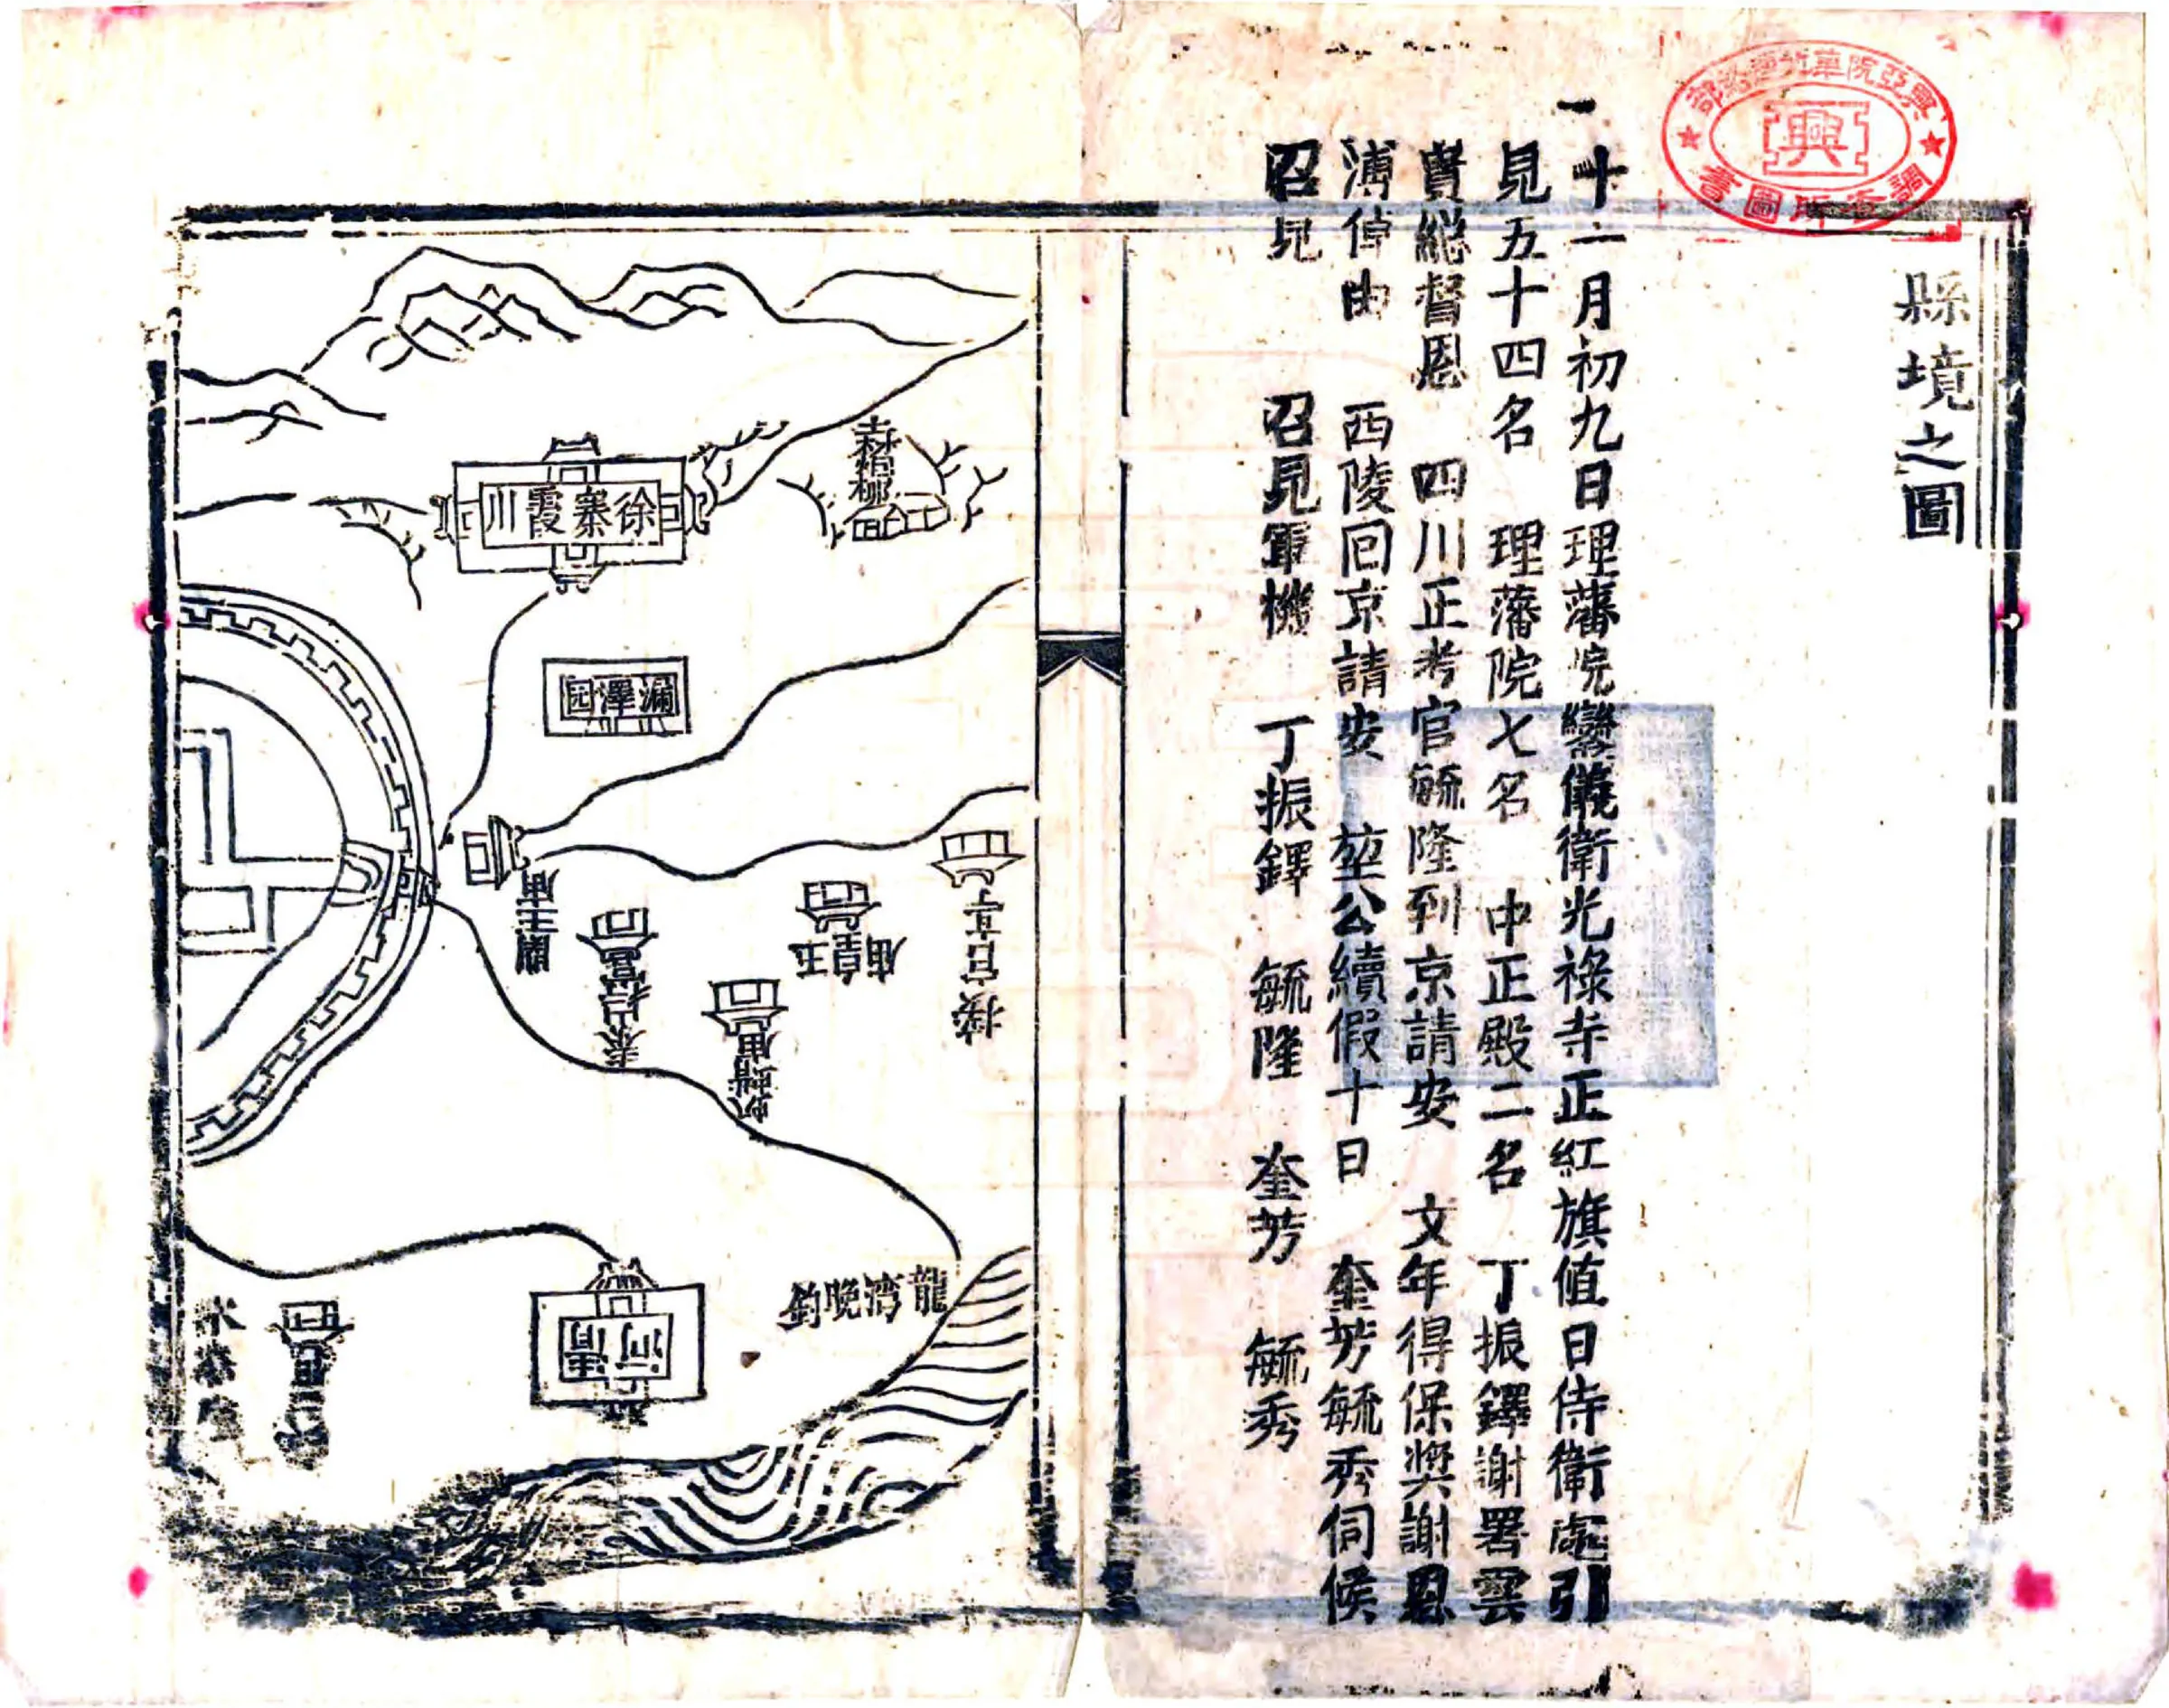 縣境之圖
興亞院華北連絡部
調查所圖書
興
十二月初九日理藩院鑾儀衛光祿寺正紅旗值日侍衛處引
見五十四名 理藩院七名 中正殿二名 丁振鐸謝署雲
貴總督恩 四川正考官毓隆到京請安 文年得保獎謝恩
溥倬由 西陵回京請安 堃公續假十日 奎芳毓秀伺候
召見 召見軍機 丁振鐸 毓隆 奎芳 毓秀
徐寨霞川
漏澤园
閻王庙
泰山行宮
玉皇庙
接官亭
蚂蜡庙
龍湾晚釣
清河